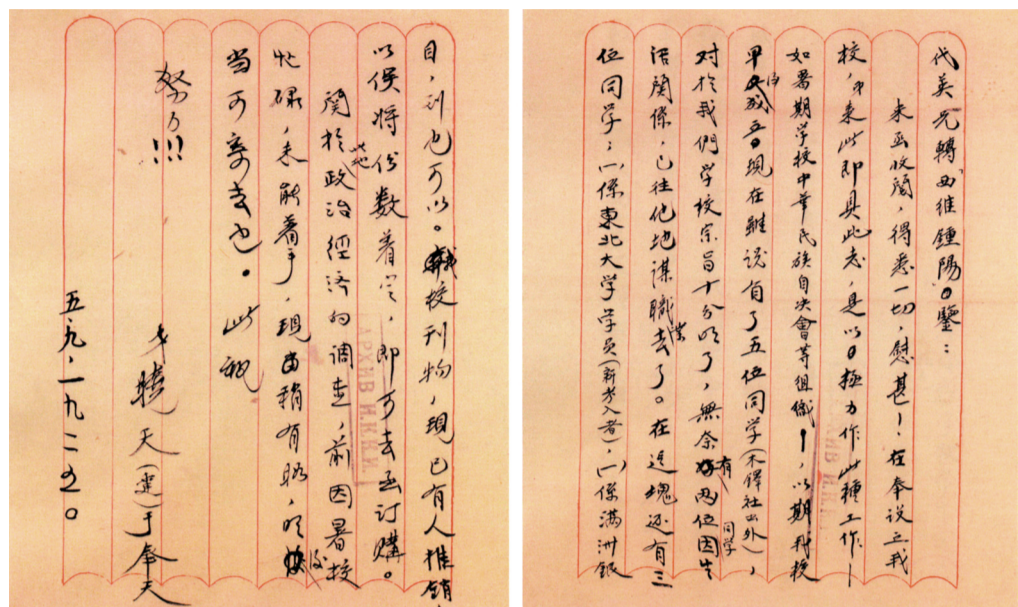 代英兄轉西維鍾陽日鑒：
来函收閱，得悉一切，慰甚！，在奉设立我
校，弟来此即具此志，是以日極力作此種工作—
如暑期学校中華民族自决會等組織！，以期我校
早日成立。現在雖说有了五位同学（不鐸社出外），
對於我們学校宗旨十分明了，無奈有两位同学因生
活關係，已往他地謀職業去了。在這塊还有三
位同学，一係東北大学学員（新考入者），一係满洲銀
目，到也可以。我校刊物，現已有人推銷，
以後将份数着定，即可去函訂購。
關於此地政治經济的调查，前因暑校
忙碌，未能着手，現稍有暇，明後
當可寄去也。此祝
努力!!!
弟曉天（建）于奉天
五.九.一九二五。
АРХИВ И.К.К.И.